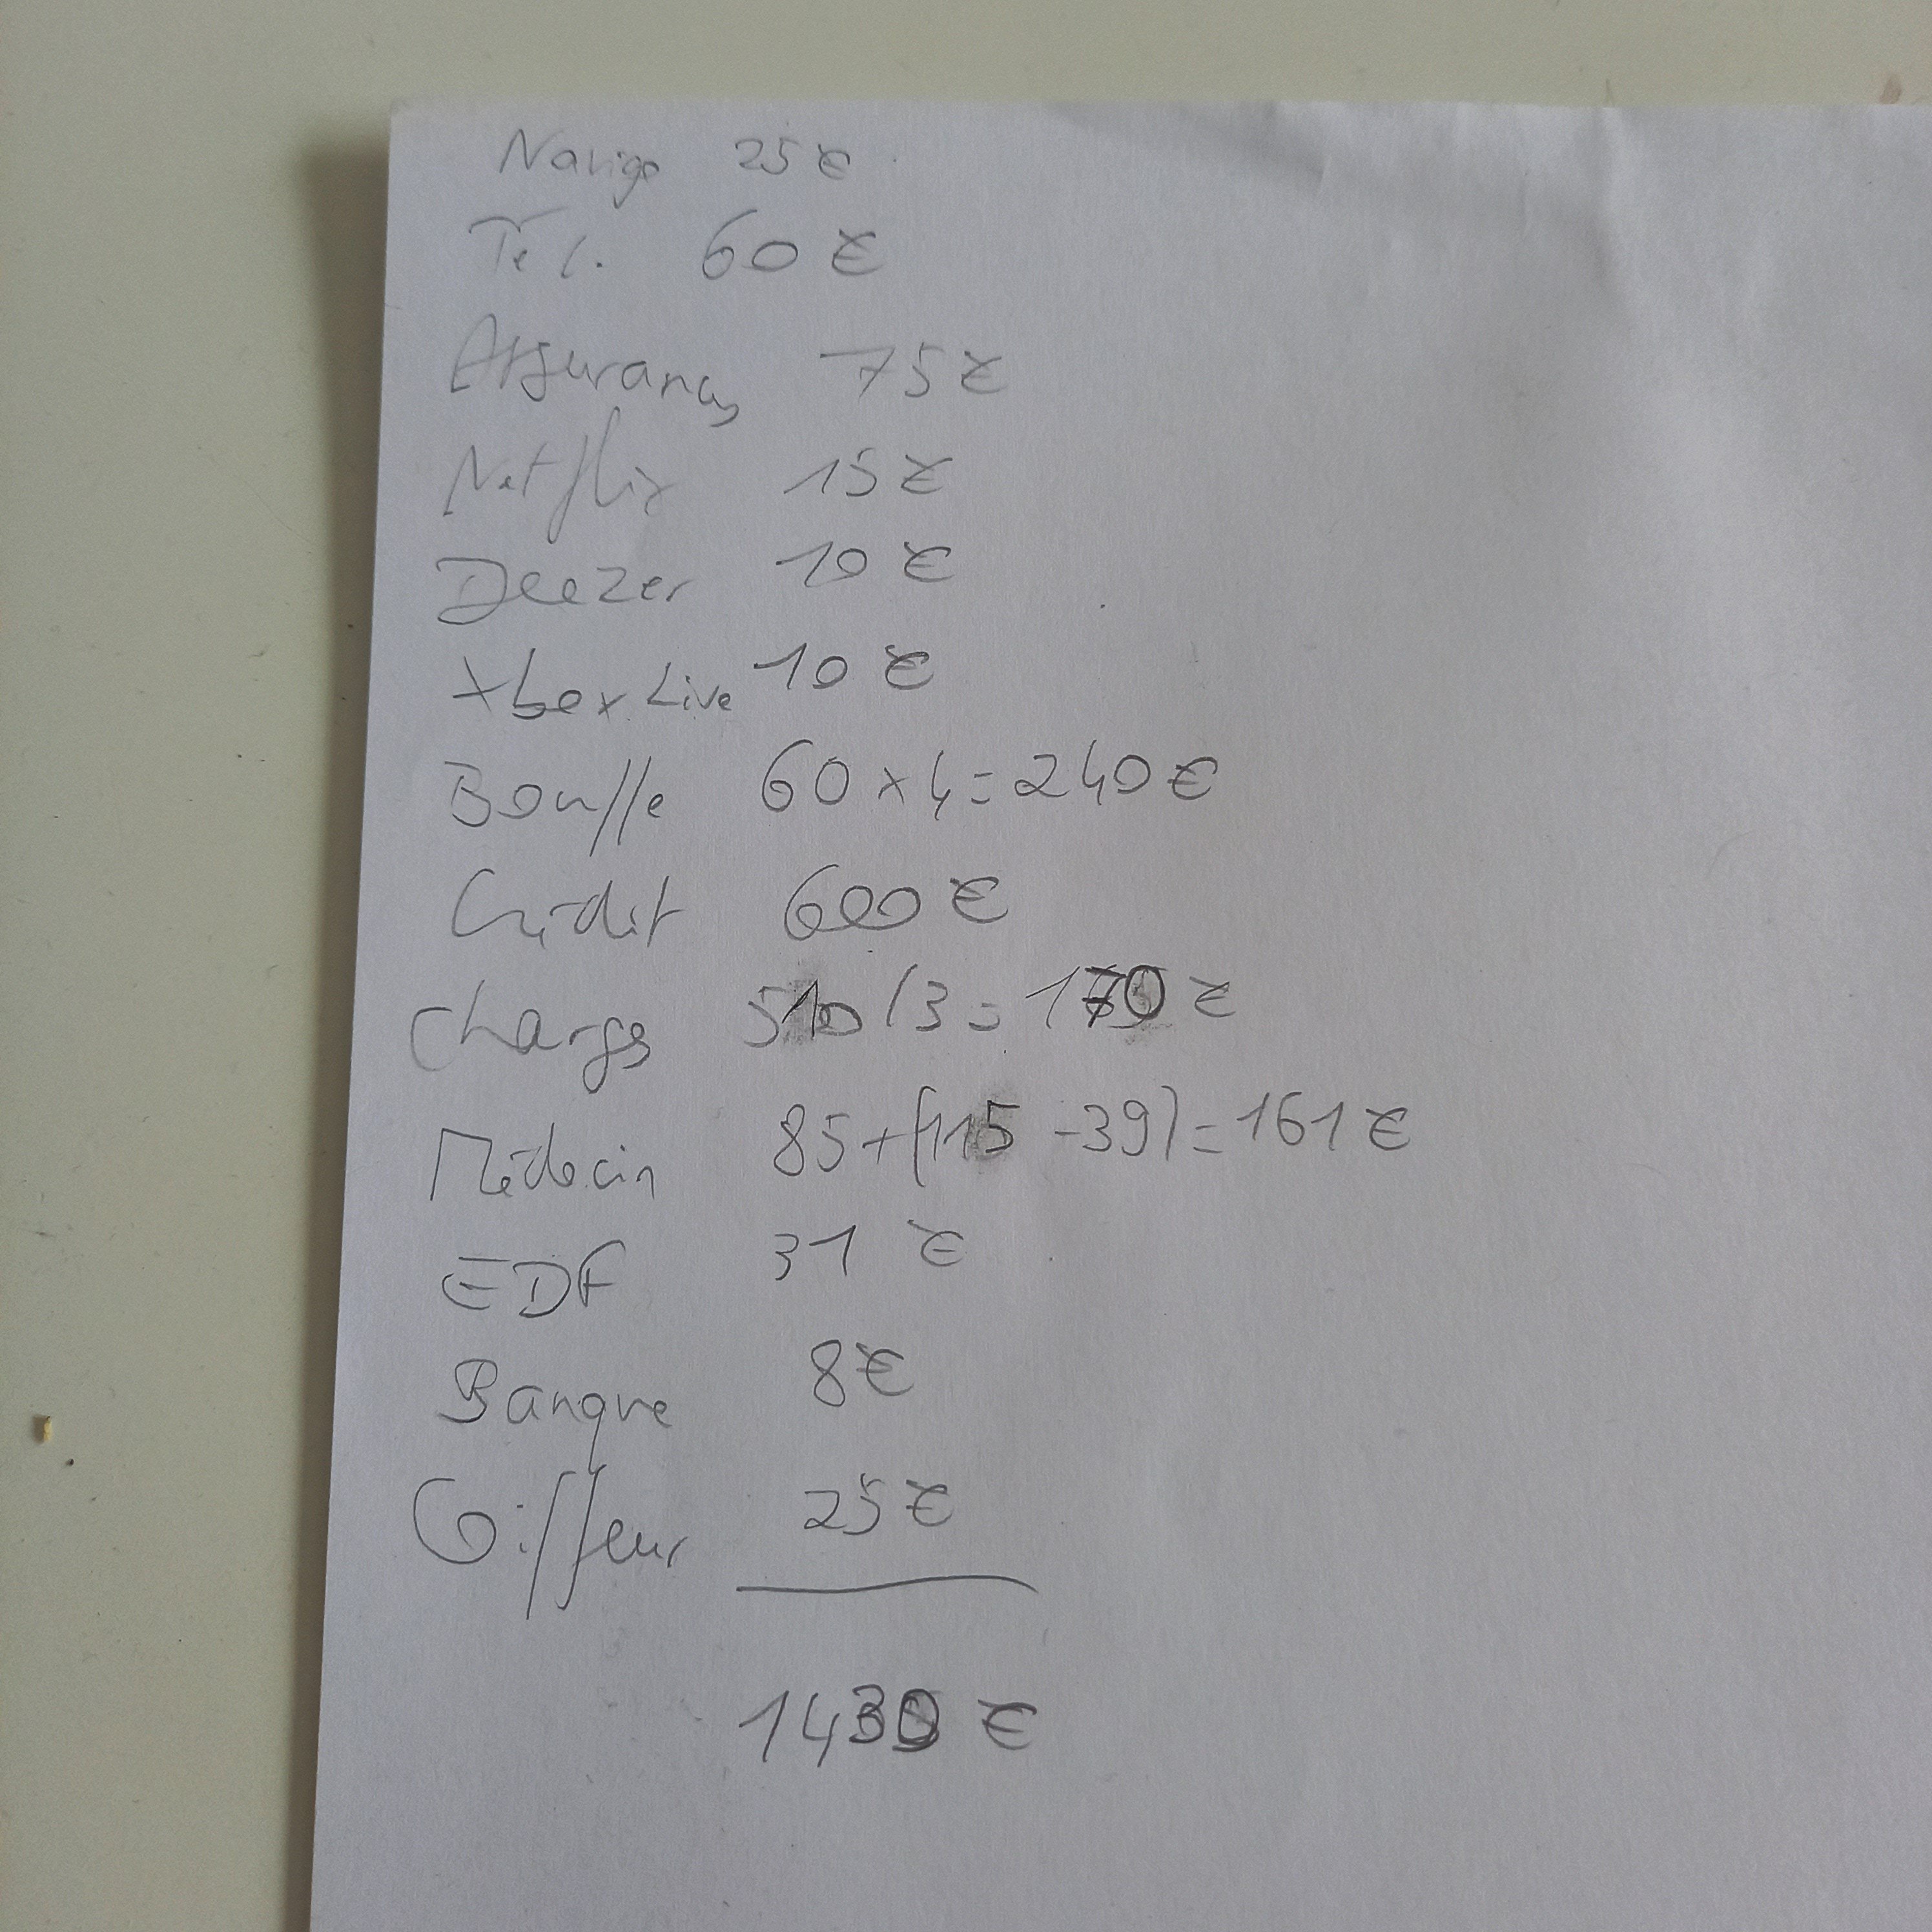 Navigo 25€
Tel. 60€
Assurances 75€
Netflix 15€
Deezer 10€
Xbox Live 10€
Bouffe 60×4=240€
Crédit 600€
Charges 510/3=170€
Médecin 85+(115-39)=161€
EDF 31€
Banque 8€
Coiffeur 25€
1430€